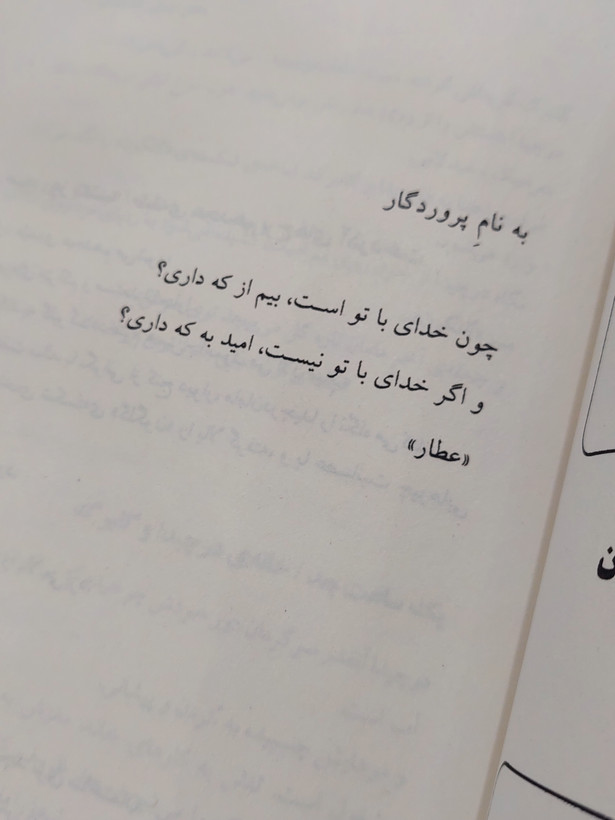 به نامِ پروردگار
چون خدای با تو است، بیم از که داری؟
و اگر خدای با تو نیست، امید به که داری؟
«عطار»